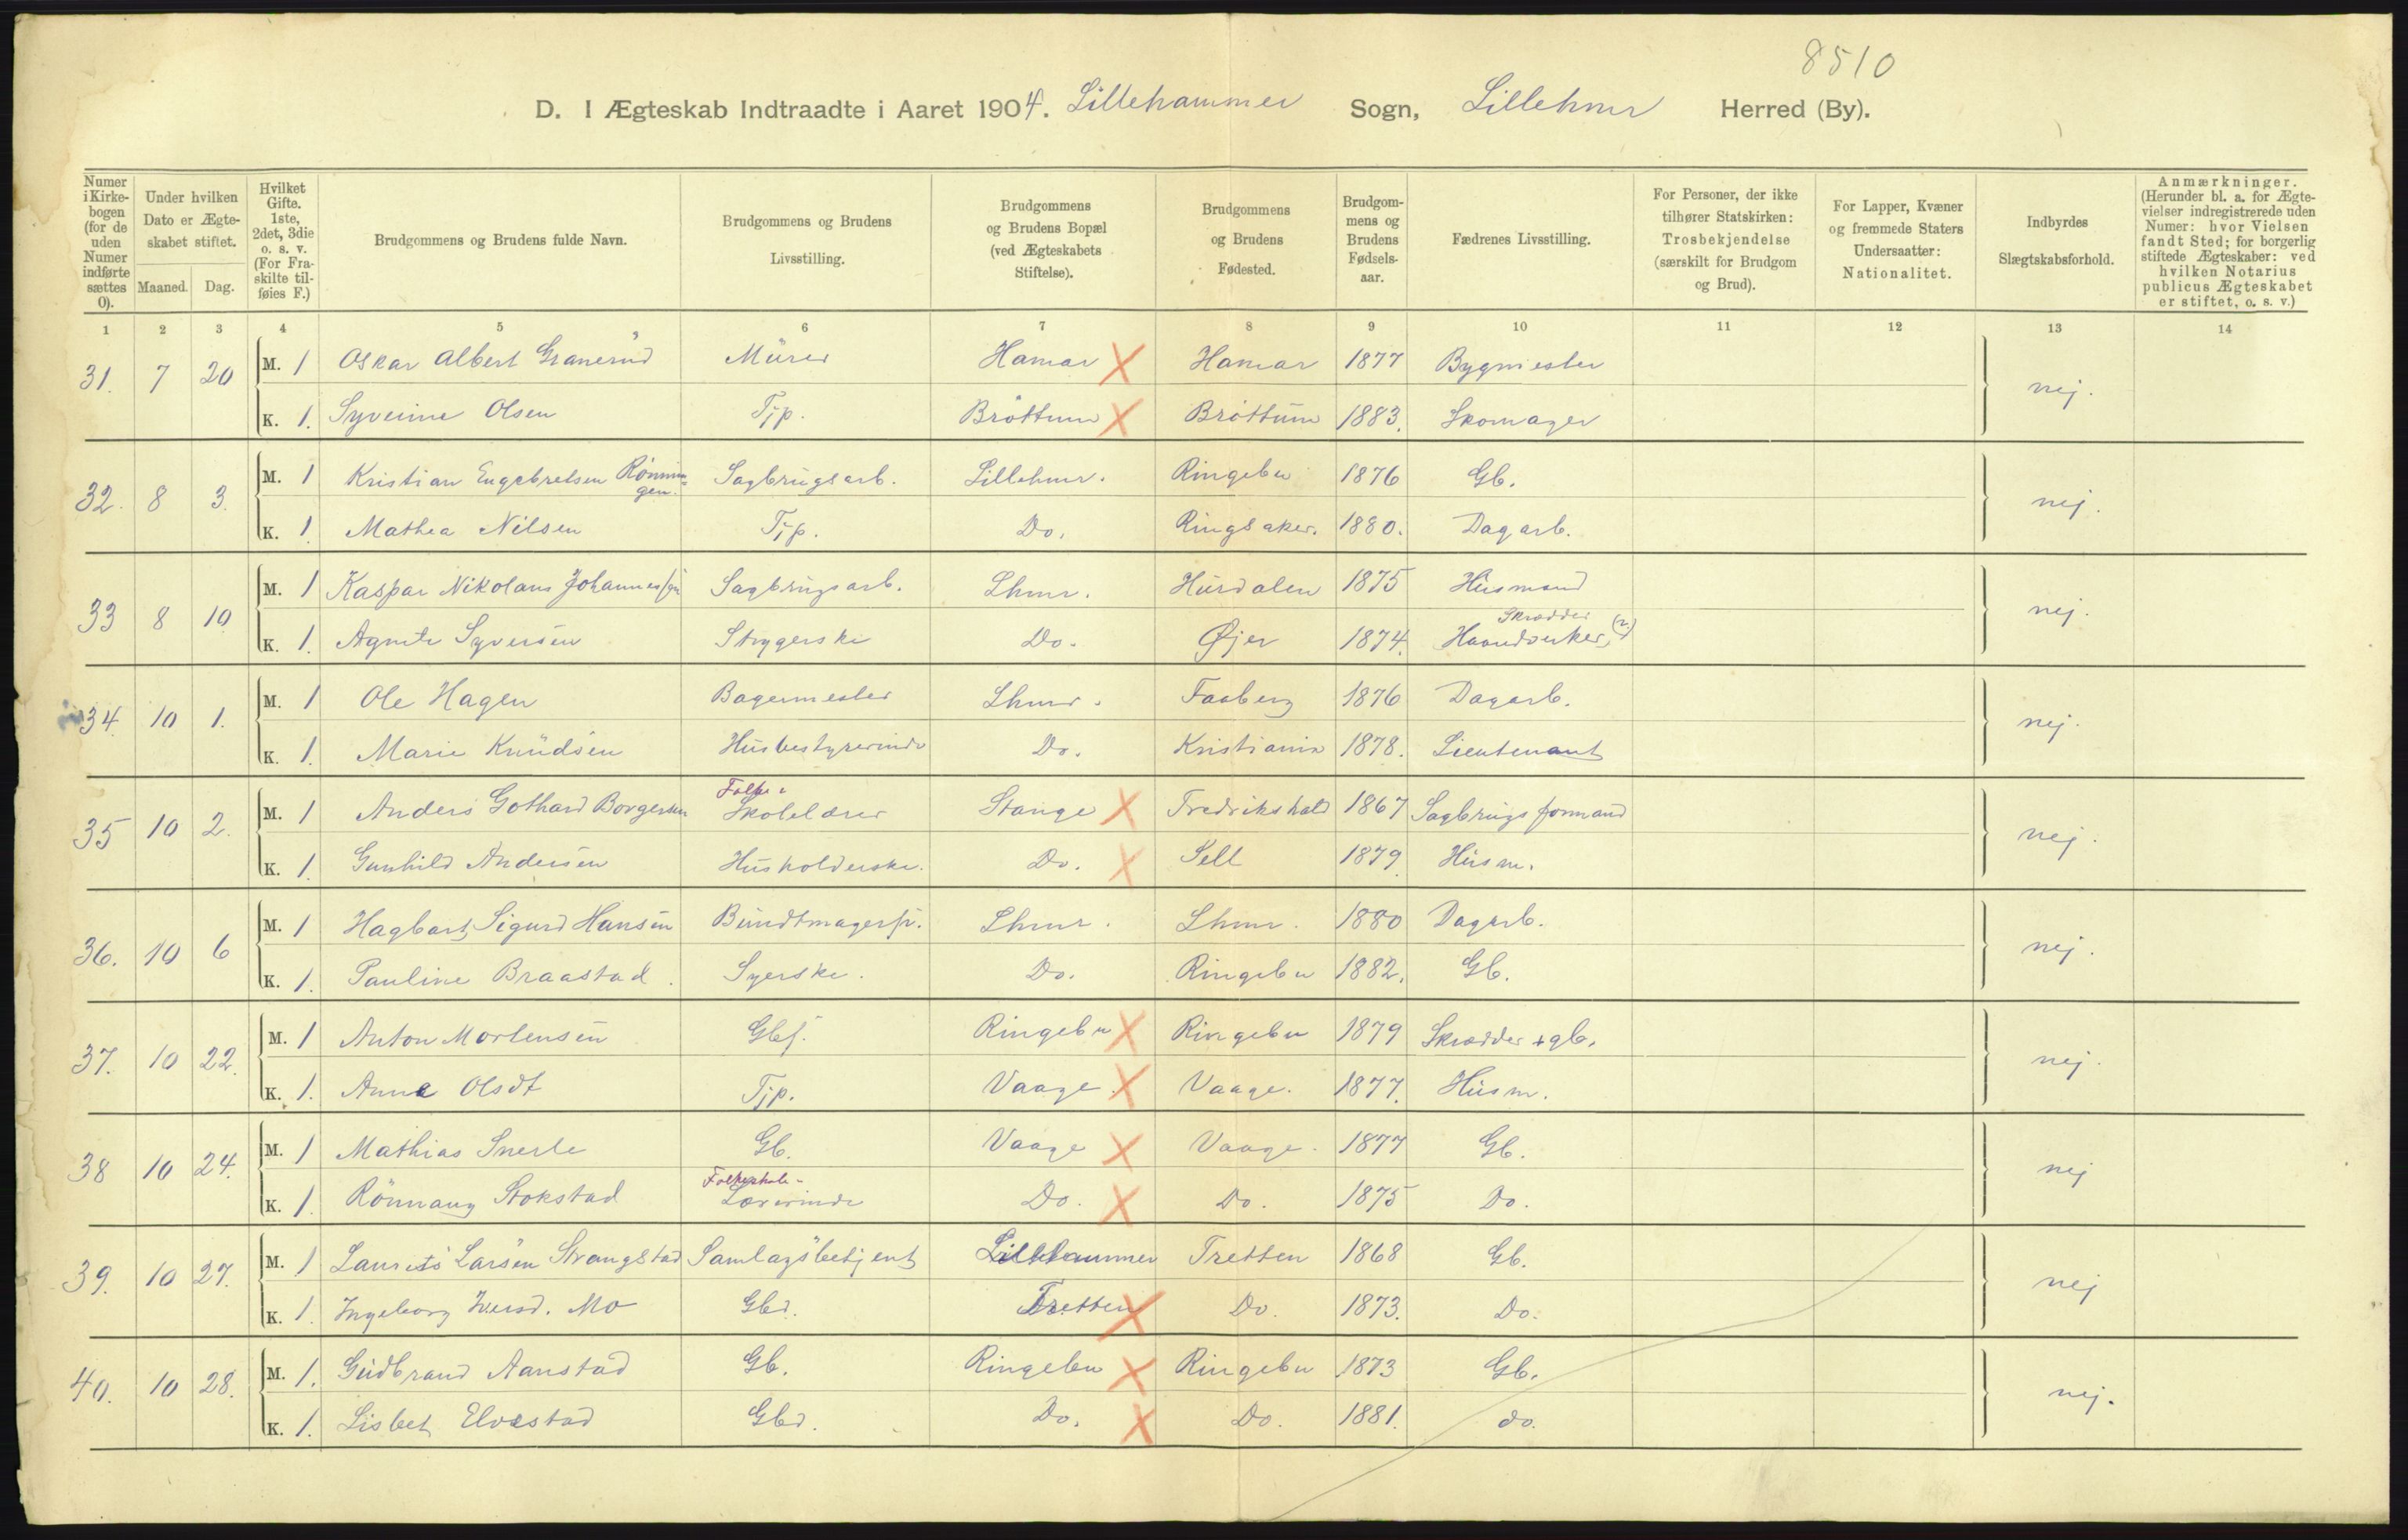 8510
D. I Ægteskab Indtraadte i Aaret 1904. Lillehammer Sogn, Lillehmr Herred (By).
Numer i Kirkebogen (for de uden Numer indførte sættes 0).
Under hvilken Dato er Ægteskabet stiftet.
Maaned. Dag.
Hvilket Gifte. 1ste, 2det, 3die o. s. v. (For Fraskilte tilføies F.)
Brudgommens og Brudens fulde Navn.
Brudgommens og Brudens Livsstilling.
Brudgommens og Brudens Bopæl (ved Ægteskabets Stiftelse).
Brudgommens og Brudens Fødested.
Brudgommens og Brudens Fødselsaar.
Fædrenes Livsstilling.
For Personer, der ikke tilhører Statskirken: Trosbekjendelse (særskilt for Brudgom og Brud).
For Lapper, Kvæner og fremmede Staters Undersaatter: Nationalitet.
Indbyrdes Slægtskabsforhold.
Anmærkninger. (Herunder bl. a. for Ægtevielser indregistrerede uden Numer: hvor Vielsen fandt Sted; for borgerlig stiftede Ægteskaber: ved hvilken Notarius publicus Ægteskabet er stiftet, o. s. v.)
1 2 3 4 5 6 7 8 9 10 11 12 13 14
31. 7 20 M. 1 Oskar Albert Granerud Murer Hamar X Hamar 1877 Bygmester nej.
K. 1. Syverine Olsen Tjp. Brøttum X Brøttum 1883. Skomager
32. 8 3. M. 1 Kristian Engebretsen Rønningen. Sagbrugsarb. Lillehmr. Ringebu 1876 Gb. nej.
K. 1. Mathea Nilsen Tjp. Do. Ringsaker. 1880. Dagarb.
33 8 10 M. 1 Kaspar Nikolaus Johannessen Sagbrugsarb. Lhmr. Hurdalen 1875 Husmand nej.
K. 1. Agnete Syversen Strygerske Do. Øjer 1874. Skrædder Haandverker (?)
34. 10 1. M. 1 Ole Hagen Bagermester Lhmr. Faaberg 1876 Dagarb. nej.
K. 1. Marie Knudsen Husbestyrerinde Do. Kristiania 1878. Lieutenant
35 10 2. M. 1 Anders Gothard Borgersen Folke- Skolelærer Stange X Fredrikshald 1867 Sagbrugsformand nej.
K. 1. Gunhild Andersen Husholderske. Do. X Sell 1879. Husm.
36. 10 6 M. 1 Hagbart Sigurd Hansen Bundtmagersv. Lhmr. Lhmr. 1880 Dagarb. nej.
K. 1. Pauline Braastad. Syerske. Do. Ringebu 1882. Gb.
37. 10 22. M. 1 Anton Mortensen Gbs. Ringebu X Ringebu 1879 Skrædder + gb. nej.
K. 1. Anna Olsdt Tjp. Vaage. X Vaage. 1877. Husm.
38 10 24. M. 1 Mathias Snerle Gb. Vaage X Vaage. 1877 Gb. nej
K. 1. Rønnaug Stokstad Folkeskole- Lærerinde Do. X Do. 1875 Do.
39. 10 27. M. 1 Laurits Larsen Strangstad Samlagsbetjent Lillehammer Tretten 1868 Gb. nej
K. 1. Ingeborg Iversd. Mo Gbd. Tretten X Do. 1873. Do.
40. 10 28. M. 1. Gudbrand Aanstad Gb. Ringebu X Ringebu 1873 Gb. nej.
K. 1. Lisbet Elvestad Gbd. Do. X Do. 1881. do.